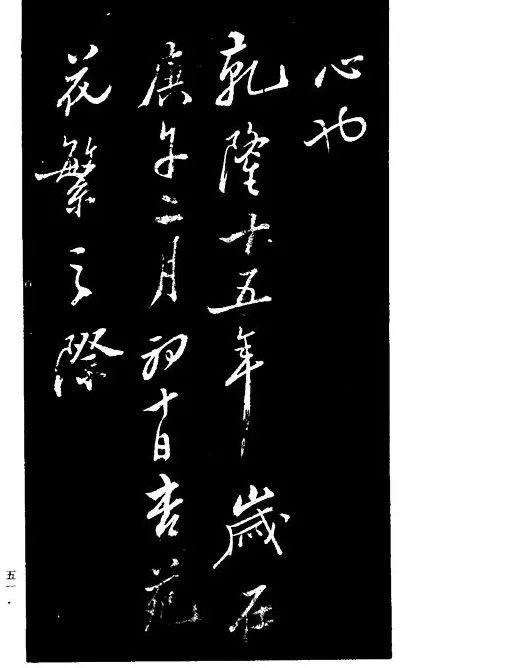 心也
乾隆十五年歲在
庚午二月初十日杏苑
花繁之際
五一